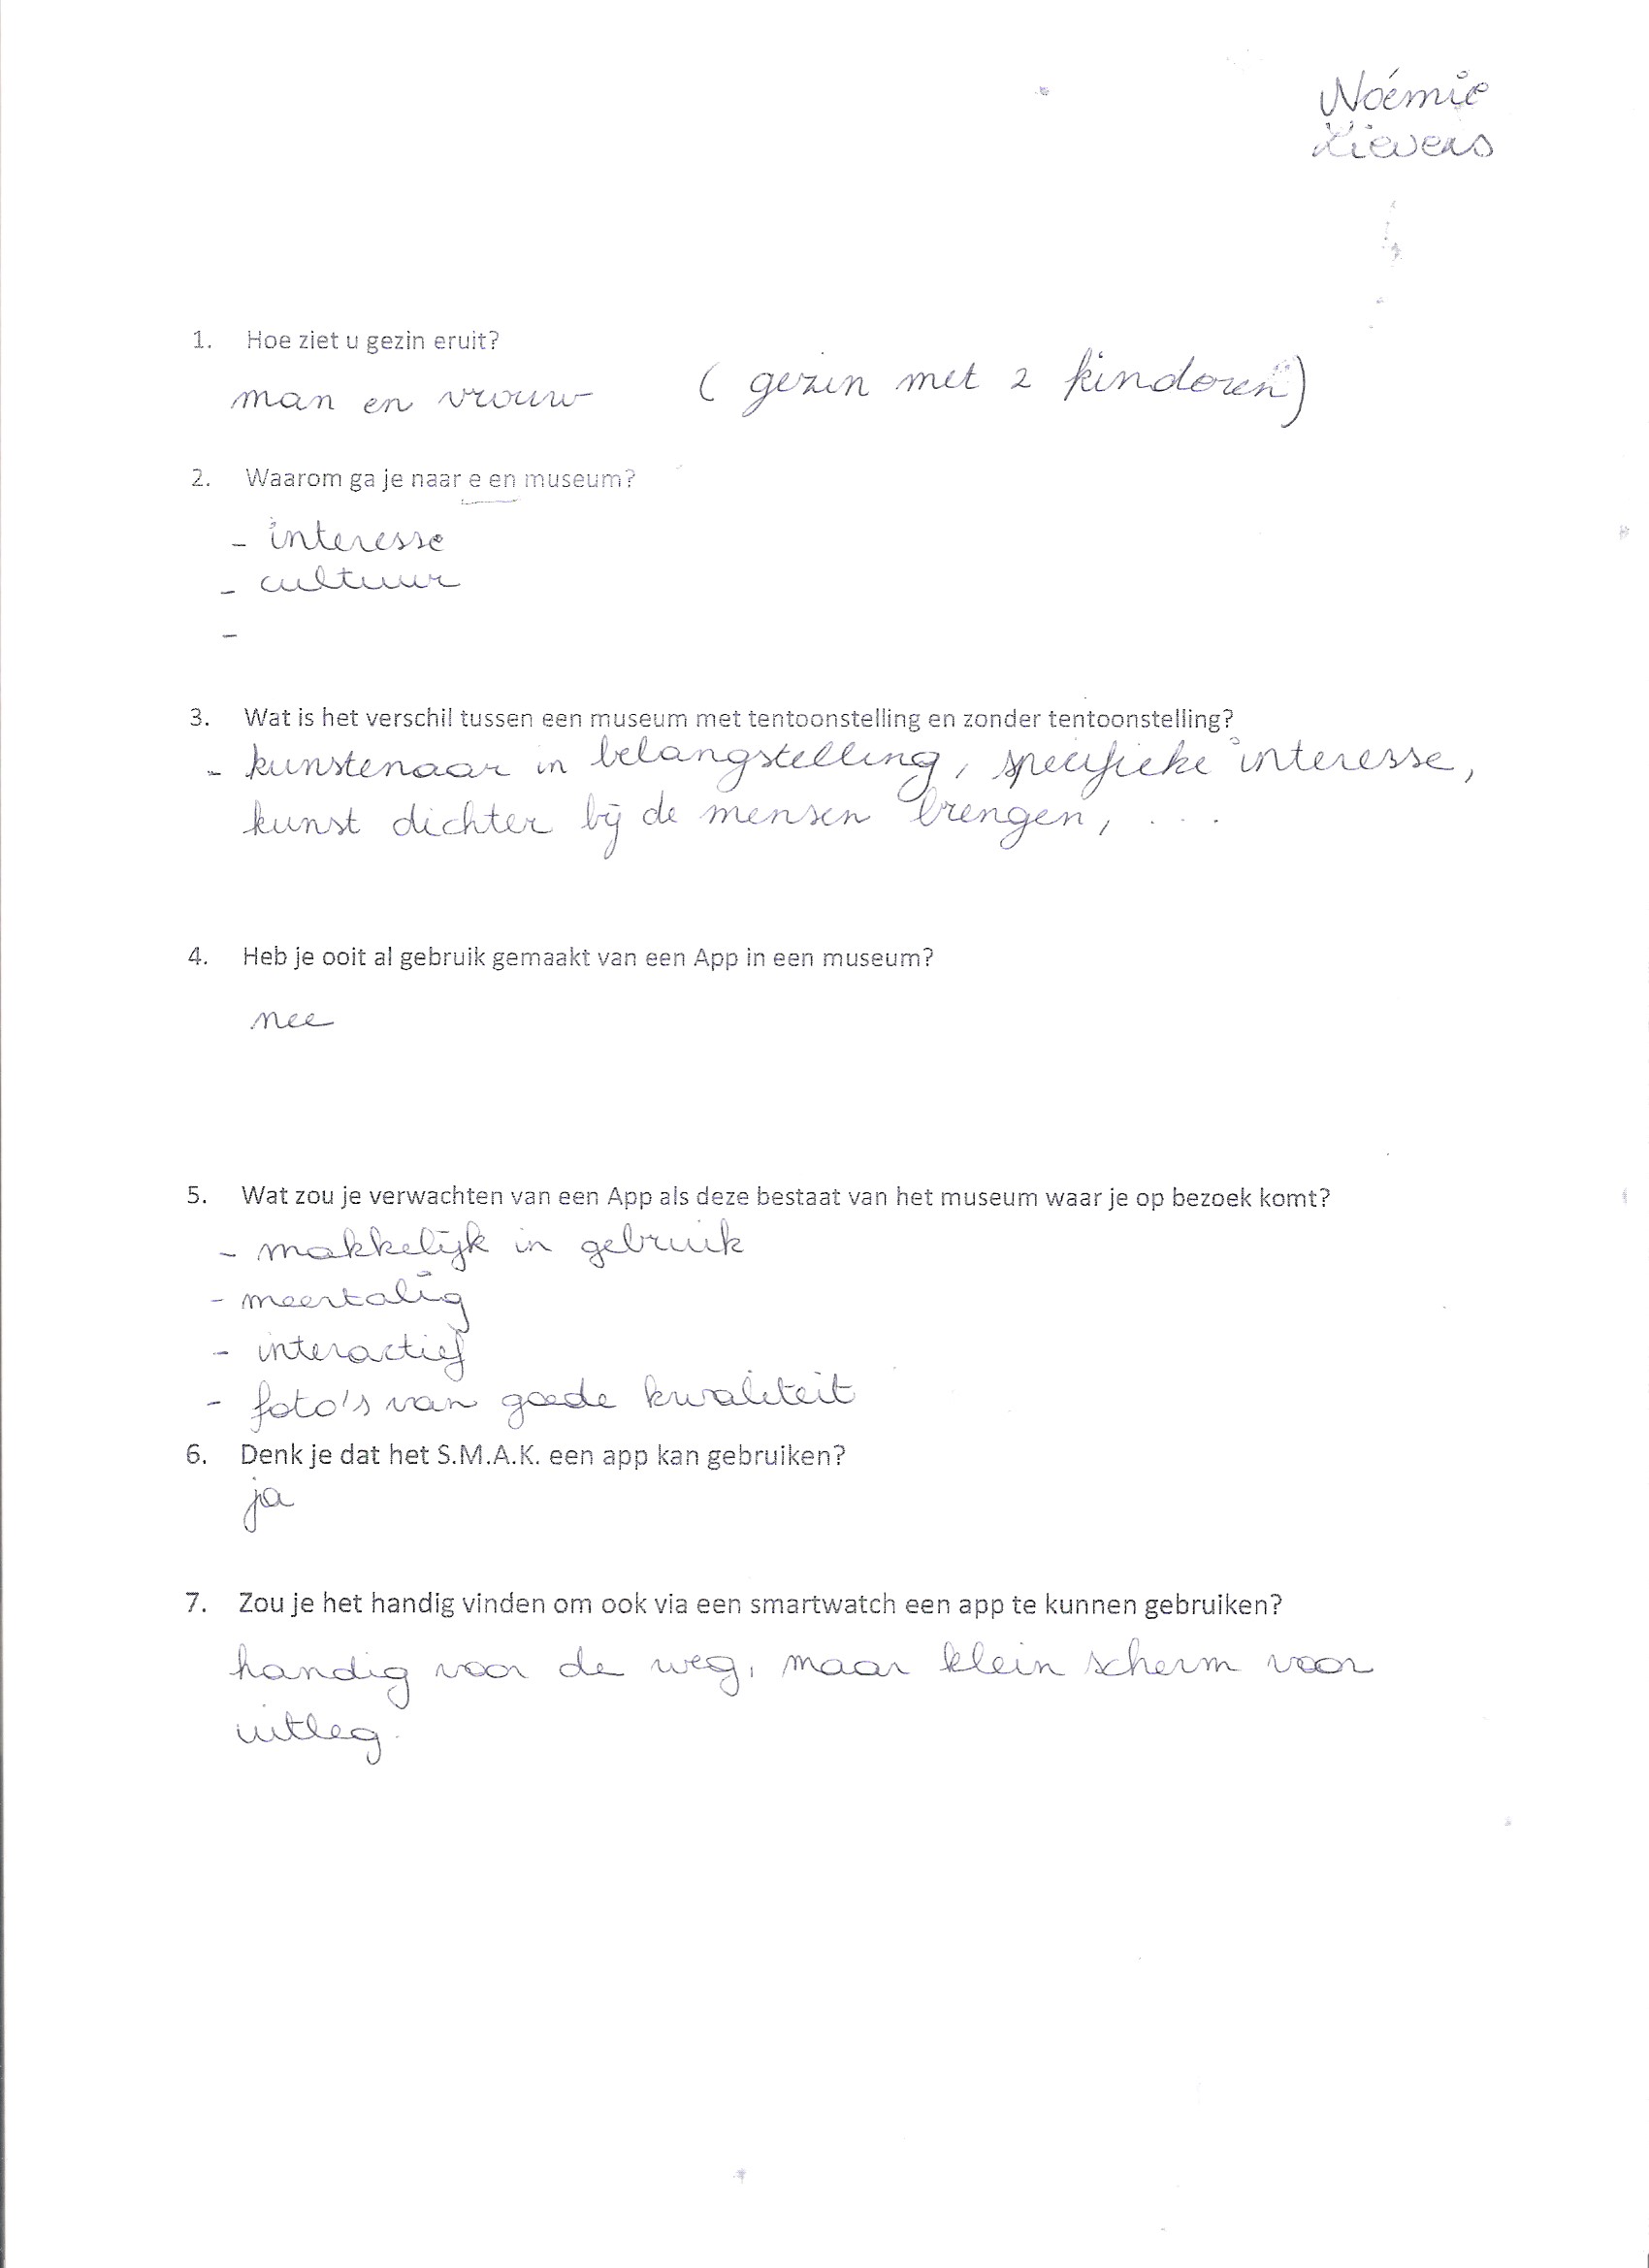 Noémie
Lievens
1. Hoe ziet u gezin eruit?
man en vrouw ( gezin met 2 kinderen)
2. Waarom ga je naar e en museum?
- interesse
- cultuur
-
3. Wat is het verschil tussen een museum met tentoonstelling en zonder tentoonstelling?
- kunstenaar in belangstelling, specifieke interesse,
kunst dichter bij de mensen brengen, ...
4. Heb je ooit al gebruik gemaakt van een App in een museum?
nee
5. Wat zou je verwachten van een App als deze bestaat van het museum waar je op bezoek komt?
- makkelijk in gebruik
- meertalig
- interactief
- foto's van goede kwaliteit
6. Denk je dat het S.M.A.K. een app kan gebruiken?
ja
7. Zou je het handig vinden om ook via een smartwatch een app te kunnen gebruiken?
handig voor de weg, maar klein scherm voor
uitleg.